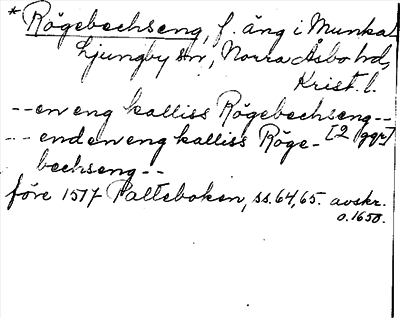 * Rögebechseng, f. äng i Munka
Ljungby sn, Norra Åsbo hd,
Krist. l.
-- en eng kalliss Rögebechseng --
-- end en eng kalliss Röge- [2 ggr]
bechseng --
före 1517 Palteboken, ss. 64, 65. avskr.
o. 1650.